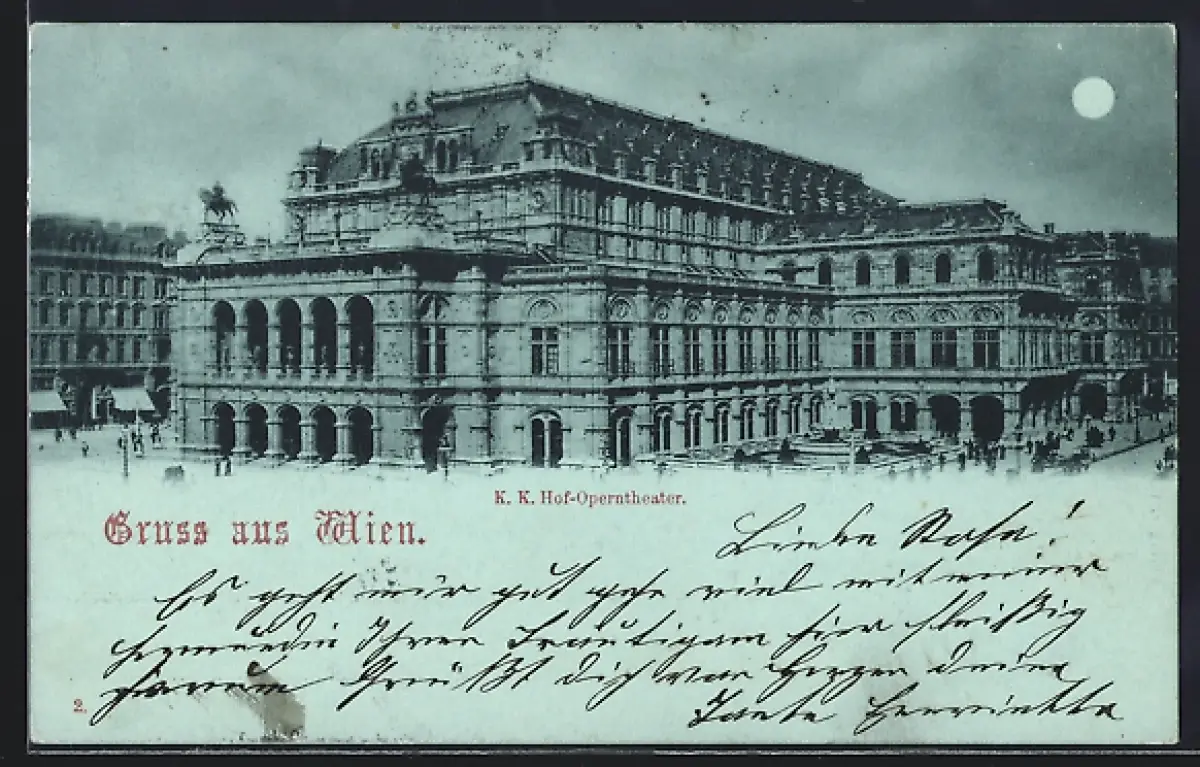 K. K. Hof-Operntheater.
Gruss aus Wien.
Liebe Rosa!
Es geht mir gut gehe viel mit meiner
Freundin Ihren Bräutigam hier fleißig
herum Grüßt dich von Herzen deine
Tante Henriette
2.